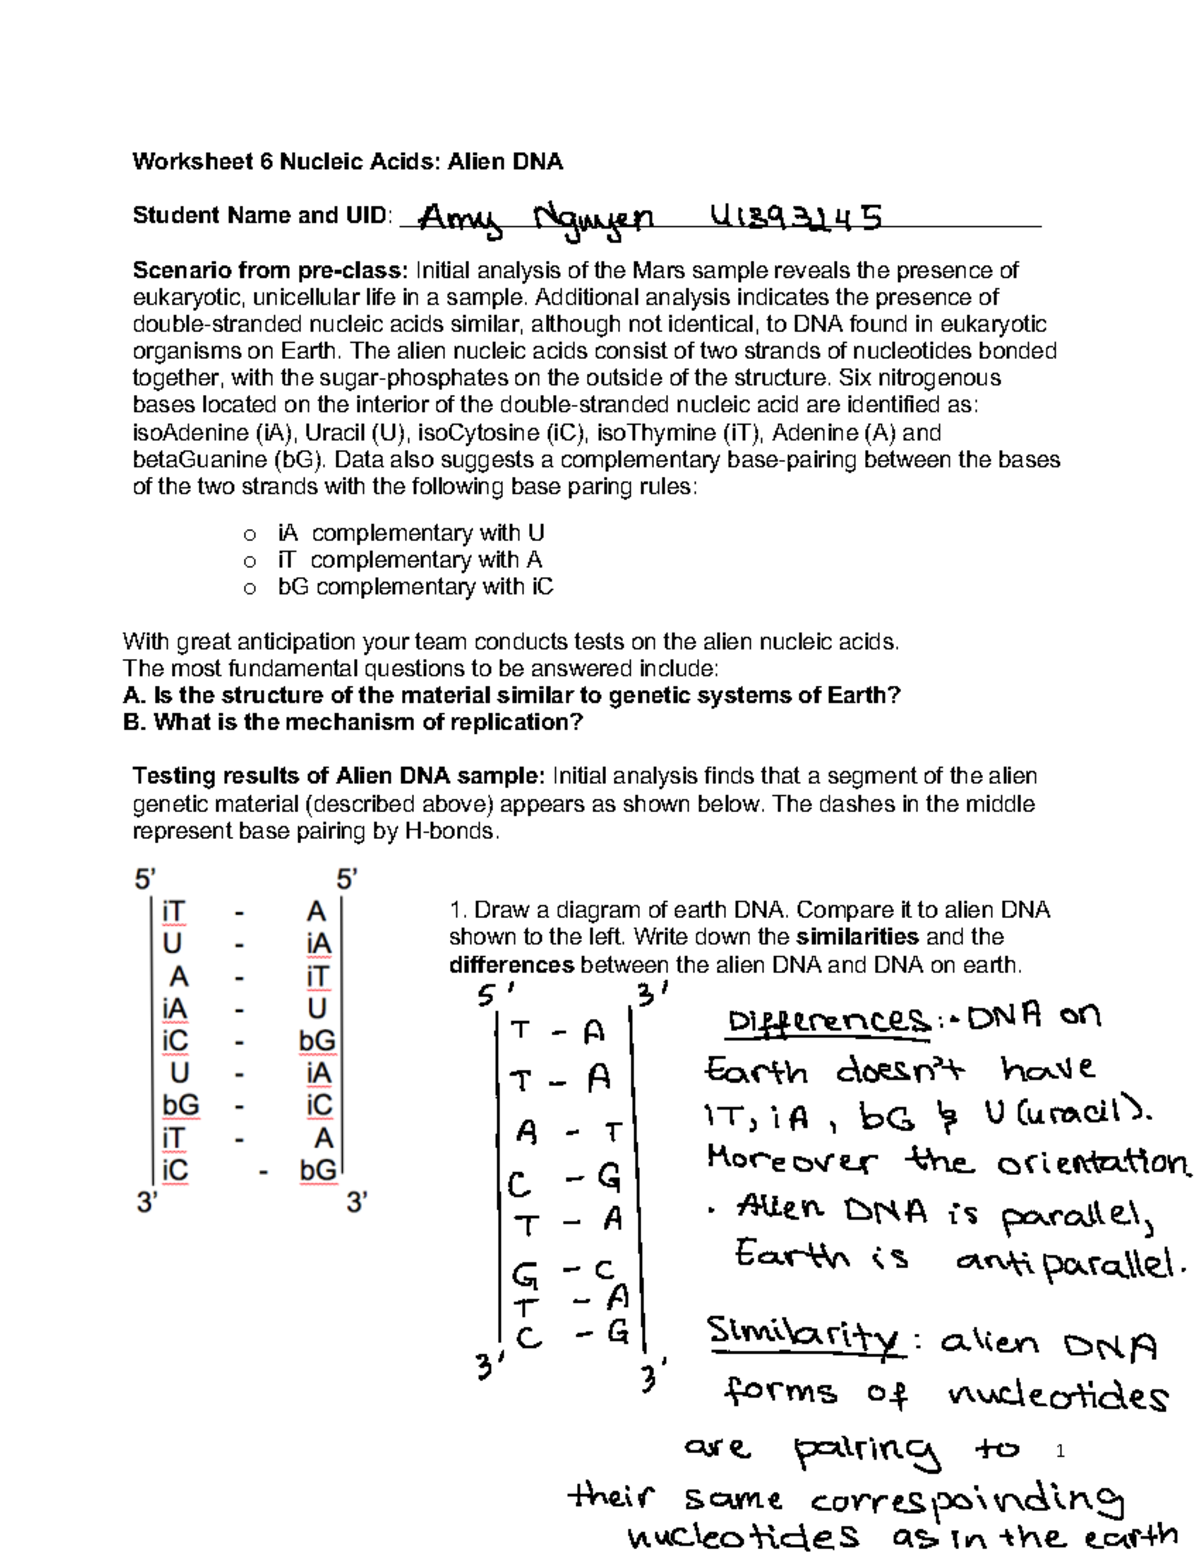 Worksheet 6 Nucleic Acids: Alien DNA
Student Name and UID: Amy Nguyen U1393145
Scenario from pre-class: Initial analysis of the Mars sample reveals the presence of
eukaryotic, unicellular life in a sample. Additional analysis indicates the presence of
double-stranded nucleic acids similar, although not identical, to DNA found in eukaryotic
organisms on Earth. The alien nucleic acids consist of two strands of nucleotides bonded
together, with the sugar-phosphates on the outside of the structure. Six nitrogenous
bases located on the interior of the double-stranded nucleic acid are identified as:
isoAdenine (iA), Uracil (U), isoCytosine (iC), isoThymine (iT), Adenine (A) and
betaGuanine (bG). Data also suggests a complementary base-pairing between the bases
of the two strands with the following base paring rules:
o iA complementary with U
o iT complementary with A
o bG complementary with iC
With great anticipation your team conducts tests on the alien nucleic acids.
The most fundamental questions to be answered include:
A. Is the structure of the material similar to genetic systems of Earth?
B. What is the mechanism of replication?
Testing results of Alien DNA sample: Initial analysis finds that a segment of the alien
genetic material (described above) appears as shown below. The dashes in the middle
represent base pairing by H-bonds.
5' 5'
iT - A
U - iA
A - iT
iA - U
iC - bG
U - iA
bG - iC
iT - A
iC - bG
3' 3'
1. Draw a diagram of earth DNA. Compare it to alien DNA
shown to the left. Write down the similarities and the
differences between the alien DNA and DNA on earth.
5' 3'
T - A
T - A
A - T
C - G
T - A
G - C
T - A
C - G
3' 3'
Differences:• DNA on
Earth doesn't have
iT, iA, bG & U (uracil).
Moreover the orientation.
• Alien DNA is parallel,
Earth is antiparallel.
Similarity: alien DNA
forms of nucleotides
are pairing to
their same correspoinding
nucleotides as in the earth
1